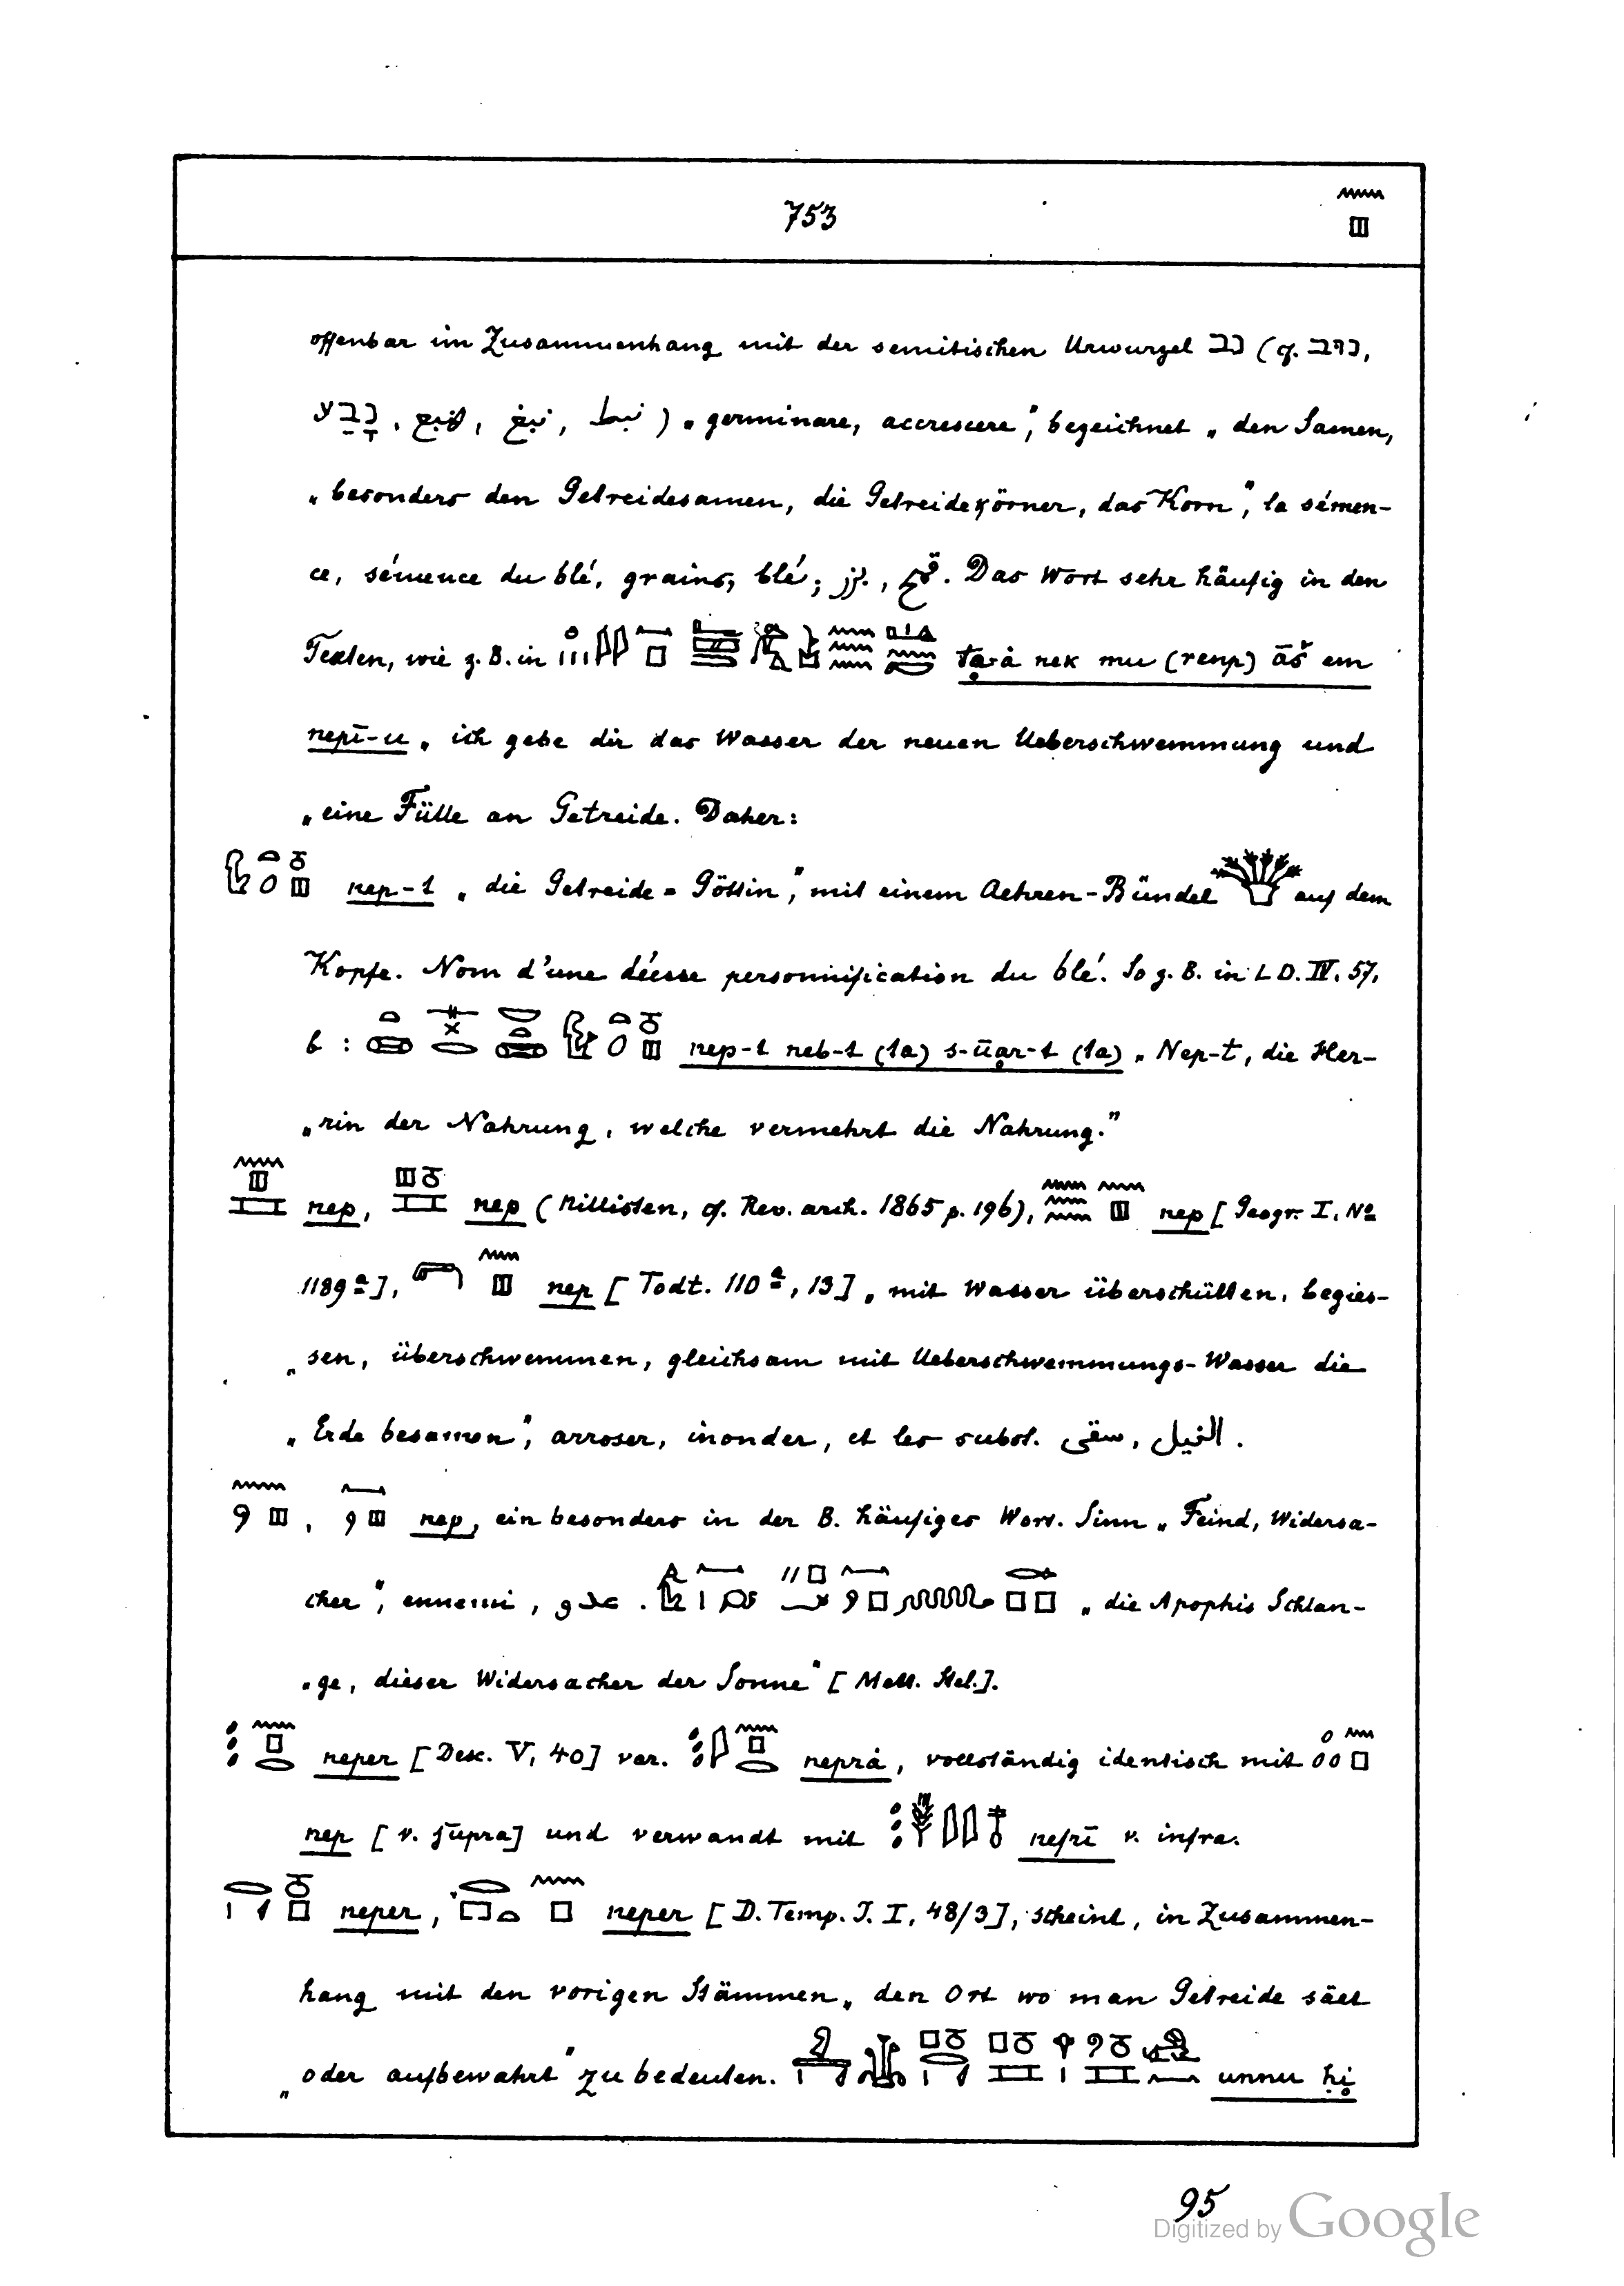 753
offenbar im Zusammenhang mit der semitischen Urwurzel נב (cf. נוב,
נבע, نبغ, نبط) „germinare, accrescere", bezeichnet „den Samen,
„besonders den Getreidesamen, die Getreidekörner, das Korn", la sémen-
ce, sémence du blé, grains, blé; بزر, قمح. Das Wort sehr häufig in den
Texten, wie z. B. in ṭa-à nek mu (renp) āš em
nepī-u „ich gebe dir das Wasser der neuen Ueberschwemmung und
„eine Fülle an Getreide. Daher:
nep-t „die Getreide-Göttin", mit einem Aehren-Bündel auf dem
Kopfe. Nom d'une déesse personnification du blé. So z. B. in LD. IV. 57,
b: nep-t neb-t (ta) s-ūar-t (ta) „Nep-t, die Her-
„rin der Nahrung, welche vermehrt die Nahrung."
nep, nep (Nillisten, cf. Rev. arch. 1865 p. 196), nep [Geogr. I. No
1189 a], nep [Todt. 110 a, 13] „mit Wasser überschütten, begies-
„sen, überschwemmen, gleichsam mit Ueberschwemmungs-Wasser die
„Erde besamen", arroser, inonder, et les subst. سقى, النيل.
nep, ein besonders in der B. häufiges Wort. Sinn „Feind, Widersa-
cher", ennemi, عدو. „die Apophis Schlan-
„ge, dieser Widersacher der Sonne" [Mett. Stel.].
neper [Desc. V, 40] var. neprà, vollständig identisch mit
nep [v. supra] und verwandt mit nefrī v. infra.
neper, neper [D. Temp. I. I, 48/3], scheint, in Zusammen-
hang mit den vorigen Stämmen „den Ort wo man Getreide säet
„oder aufbewahrt" zu bedeuten. unnu ḥi
95
Digitized by Google